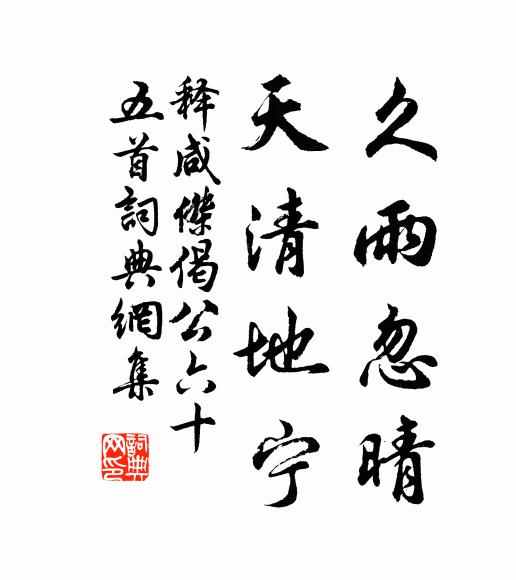 久雨忽晴
天清地宁
释咸傑偈公六十
五首詞典網集
詞典網印